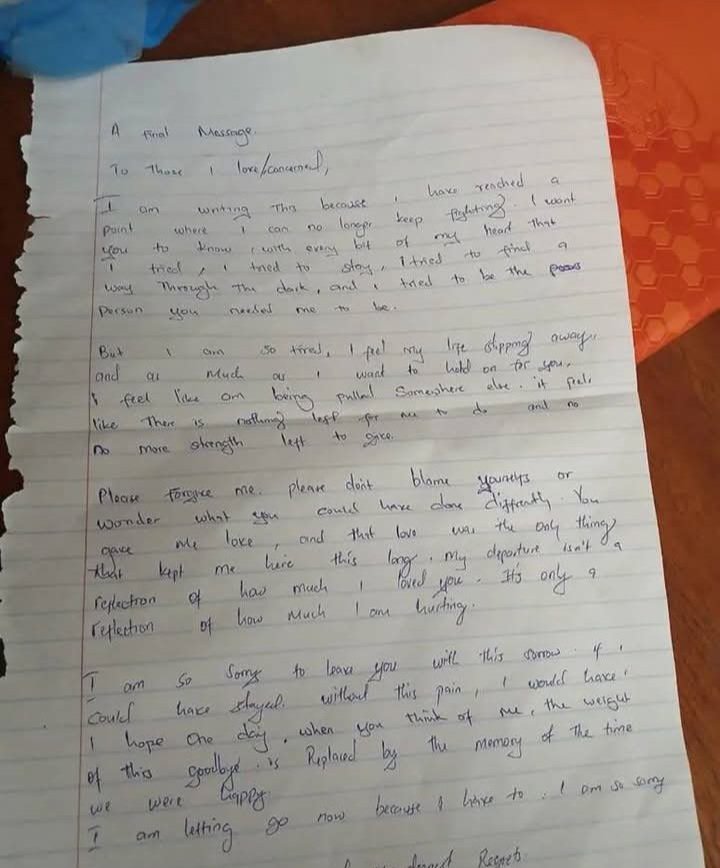 A final Message.
To Those I love/concerned,
I am writing This because I have reached a
point where I can no longer keep fighting. I want
you to know, with every bit of my heart that
I tried, I tried to stay, I tried to find a
way Through The dark, and I tried to be the
person you needed me to be.
But I am so tired, I feel my life slipping away,
and as much as I want to hold on for you,
I feel like am being pulled Somewhere else. it feels
like There is nothing left for me to do and no
no more strength left to give.
Please Forgive me. please don't blame yourselfs or
wonder what you could have done differently. You
gave me love, and that love was the only thing
that kept me here this long. my departure isn't a
reflection of how much I loved you. It's only a
reflection of how much I am hurting.
I am so sorry to leave you with this sorrow. if I
could have stayed without this pain, I would have.
I hope one day, when you think of me, the weight
of this goodbye is Replaced by the memory of the time
we were happy.
I am letting go now because I have to. I am so sorry
Regrets.